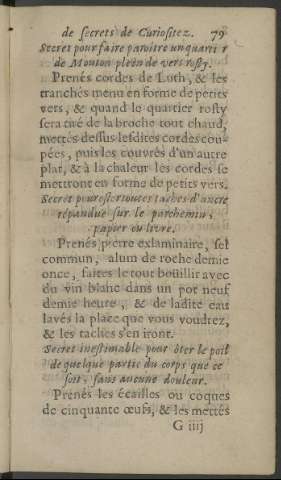 de secrets de Curiositez. 79
Secret pour faire paroitre un quarti r
de Mouton plein de vers rosty.
Prenés cordes de Luth, & les
tranchés menu en forme de petits
vers, & quand le quartier rosty
sera tiré de la broche tout chaud,
mettés dessus lesdites cordes cou-
pées, puis les couvrés d'un autre
plat, & à la chaleur les cordes se
mettront en forme de petits vers.
Secret pour oster toutes taches d'ancre
répandue sur le parchemin,
papier ou livre.
Prenés pierre exlaminaire, sel
commun, alum de roche demie
once, faites le tout boüillir avec
du vin blanc dans un pot neuf
demie heure, & de ladite eau
lavés la place que vous voudrez,
& les taches s'en iront.
Secret inestimable pour ôter le poil
de quelque partie du corps que ce
soit, sans aucune douleur.
Prenés les écailles ou coques
de cinquante œufs, & les mettés
G iiij